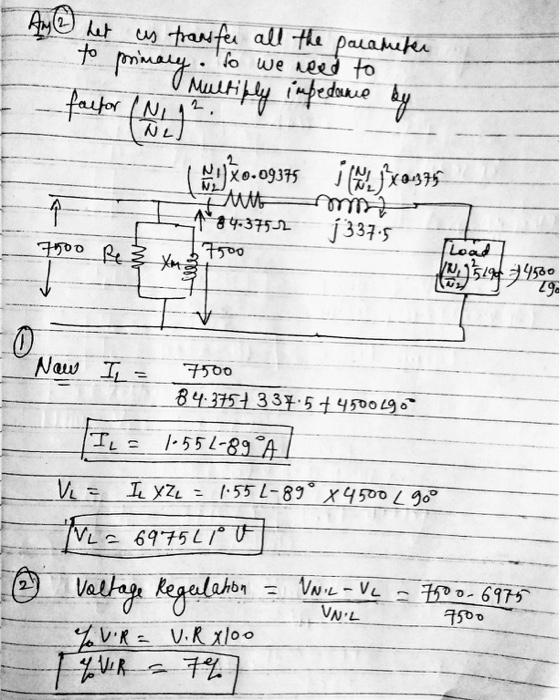 Ans ② Let us transfer all the parameter
to primary. So we need to
Multiply impedance by
factor (N1/N2)².
(N1/N2)² × 0.09375 j(N1/N2)² × 0.375
84.375Ω j337.5
7500 Rc Xm 7500
Load
(N1/N2)² 5∠90 ⇒ 4500
∠90
①
Now IL = 7500 / 84.375 + 337.5 + 4500∠90°
IL = 1.55∠-89° A
VL = IL × ZL = 1.55∠-89° × 4500∠90°
VL = 6975∠1° V
② Voltage Regulation = VN.L - VL / VN.L = 7500 - 6975 / 7500
% V.R = V.R × 100
% V.R = 7%